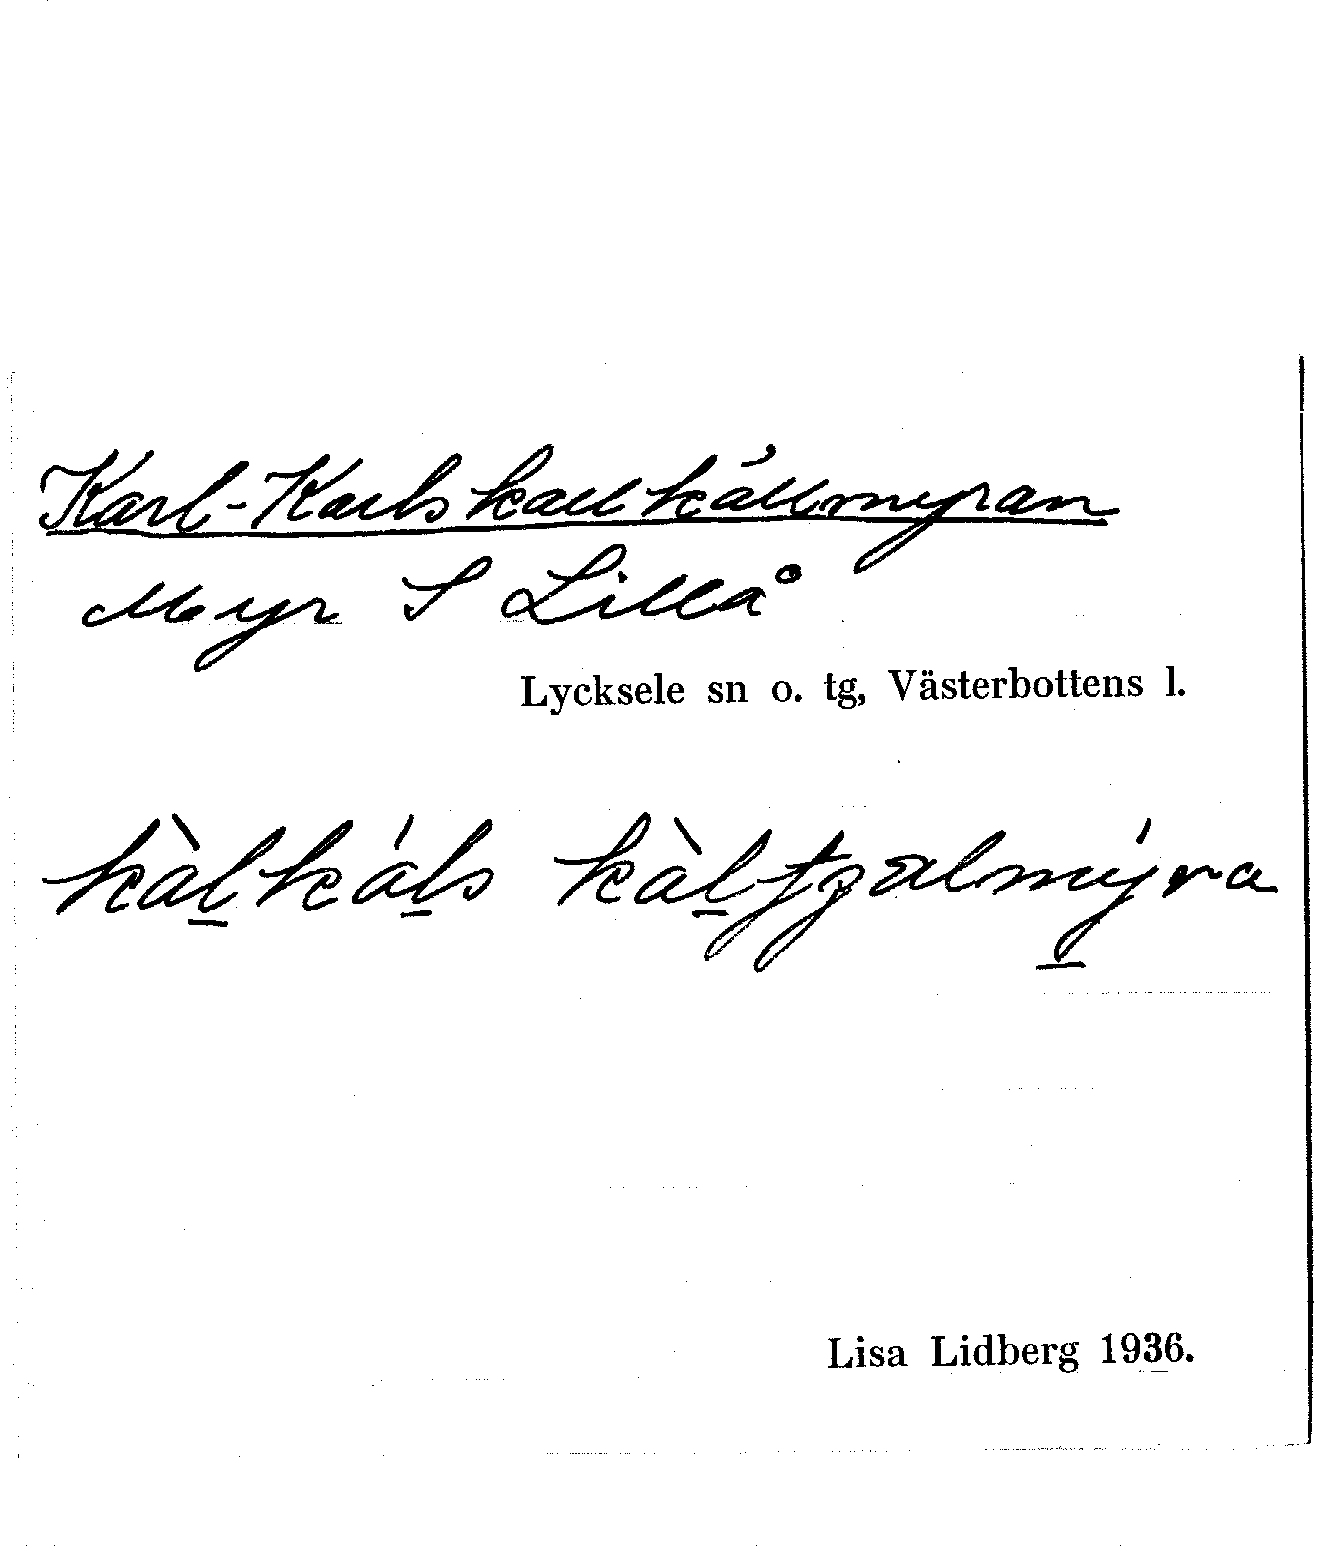 Karl-Karlskallkällmyran
Myr S Lillå
Lycksele sn o. tg, Västerbottens l.
kàl̲kál̲s kàl̲tʒælmý̲ra
Lisa Lidberg 1936.